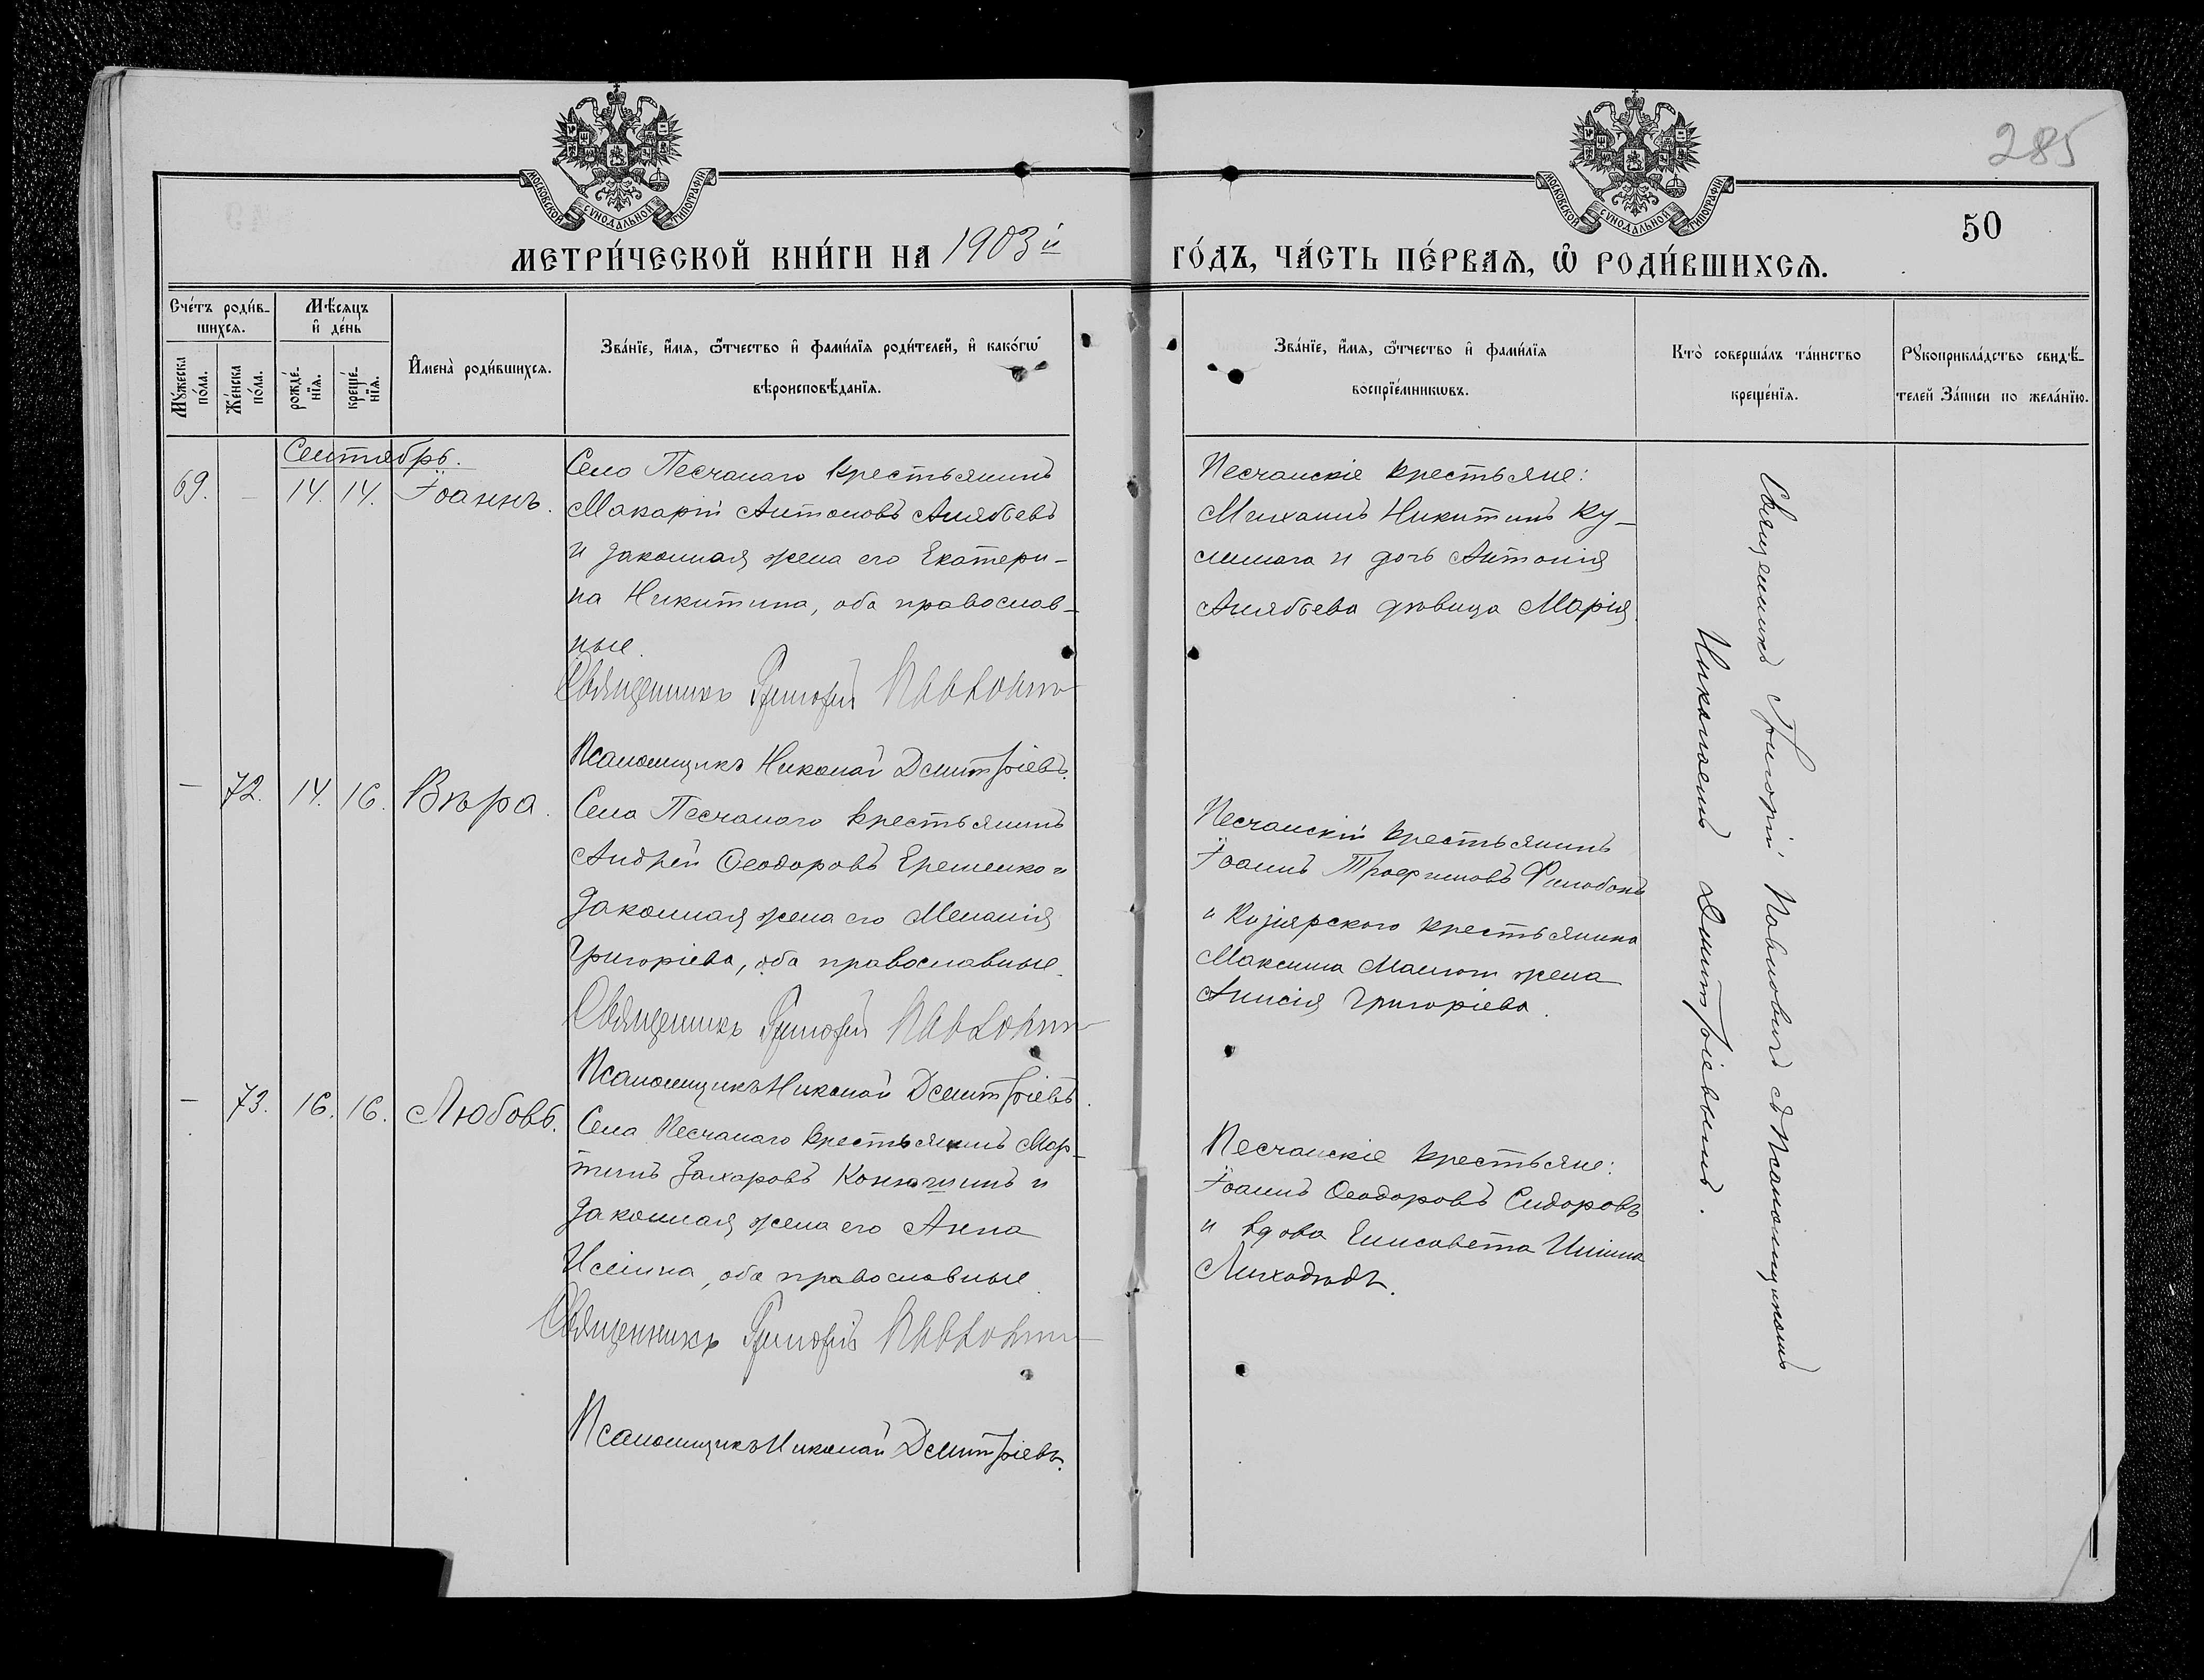 285
МОСКОВСКОЙ СѴНОДАЛЬНОЙ ТИПОГРАФІИ
МОСКОВСКОЙ СѴНОДАЛЬНОЙ ТИПОГРАФІИ
50
МЕТРИ́ЧЕСКОЙ КНИ́ГИ НА 1903й
ГО́ДЪ, ЧА́СТЬ ПЕ́РВАѦ, Ѡ҆ РОДИ́ВШИХСѦ.
Сче́тъ роди́в-
шихсѧ.
Мꙋ́жеска
по́ла.
Же́нска
по́ла.
Мѣ́сѧцъ
и҆ де́нь
рожде́-
нїѧ.
креще́-
нїѧ.
И҆мена̀ роди́вшихсѧ.
Зва́нїе, и҆́мѧ, ѻ҆́тчество и҆ фами́лїѧ роди́телей, и҆ како́гѡ
вѣроисповѣ́данїѧ.
Зва́нїе, и҆́мѧ, ѻ҆́тчество и҆ фами́лїѧ
воспрїе́мникѡвъ.
Кто̀ соверша́лъ та́инство
креще́нїѧ.
Рꙋкоприкла́дство свидѣ́-
телей За́писи по жела́нїю.
Сентябрь.
69. – 14. 14. Іоаннъ.
Село Песчанаго крестьянинъ
Макарій Антоновъ Алябьевъ
и законная жена его Екатери-
на Никитина, оба православ-
ные.
Священникъ Григорій Павловичъ
Псаломщикъ Николай Дмитріевъ.
Песчанскіе крестьяне:
Михаилъ Никитинъ
и дочь Антонія
Алябьева дѣвица Марія.
– 72. 14. 16. Вѣра.
Села Песчанаго крестьянинъ
Андрей Ѳеодоровъ Еременко и
законная жена его Меланія
Григоріева, оба православные.
Священникъ Григорій Павловичъ
Псаломщикъ Николай Дмитріевъ.
Песчанскій крестьянинъ
Іоаннъ Трофимовъ
и крестьянина
Максима жена
Анисія Григоріева.
– 73. 16. 16. Любовь.
Села Песчанаго крестьянинъ Мар-
тинъ Захаровъ и
законная жена его Анна
оба православные.
Священникъ Григорій Павловичъ
Псаломщикъ Николай Дмитріевъ.
Песчанскіе крестьяне:
Іоаннъ Ѳеодоровъ Сидоровъ
и вдова Елисавета Иліина
Лиходѣдъ.
Священникъ Григорій Павловичъ съ Псаломщикомъ
Николаемъ Дмитріевымъ.